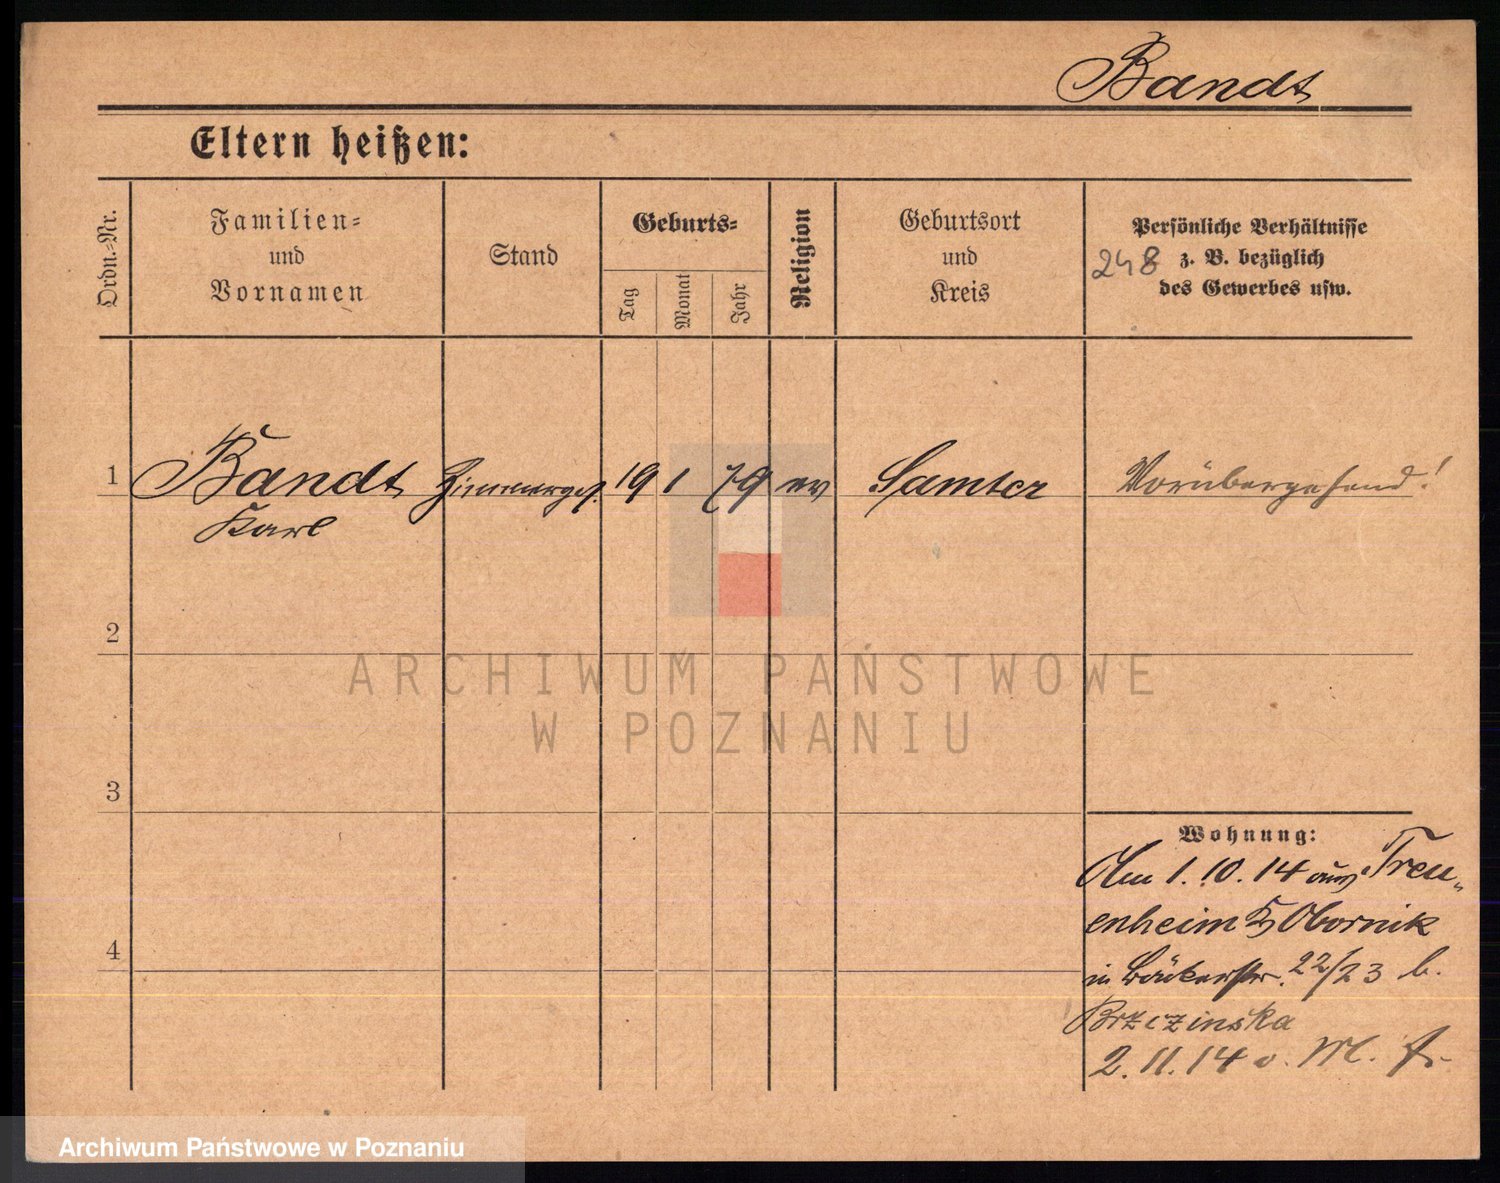 Bandt
Eltern heißen:
Ordn.-Nr.
Familien-
und
Vornamen
Stand
Geburts-
Tag
Monat
Jahr
Religion
Geburtsort
und
Kreis
Persönliche Verhältnisse
248 z. B. bezüglich
des Gewerbes usw.
1 Bandt Zimmerges. 19 1 79 ev Samter Vorübergehend!
Karl
2
3
4
ARCHIWUM PAŃSTWOWE
W POZNANIU
Wohnung:
Am 1.10.14 aus Treu-
enheim Kr Obornik
in Bäckerstr. 22/23 b.
Brzezinska
2.11.14 o. M.
Archiwum Państwowe w Poznaniu